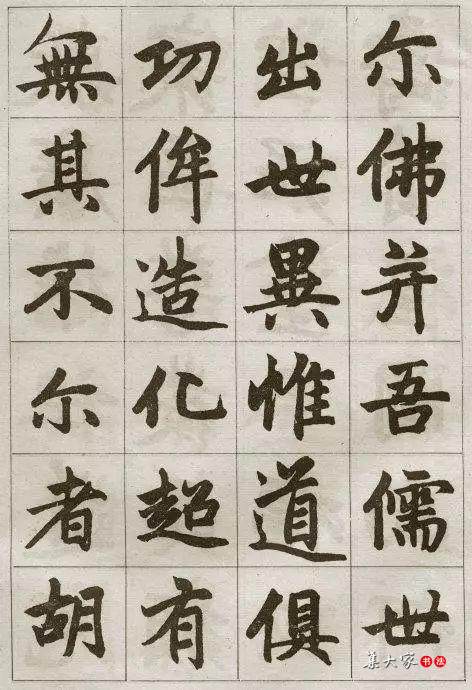 尓佛并吾儒世
出世異惟道俱
功侔造化超有
無其不尓者胡
集大家书法